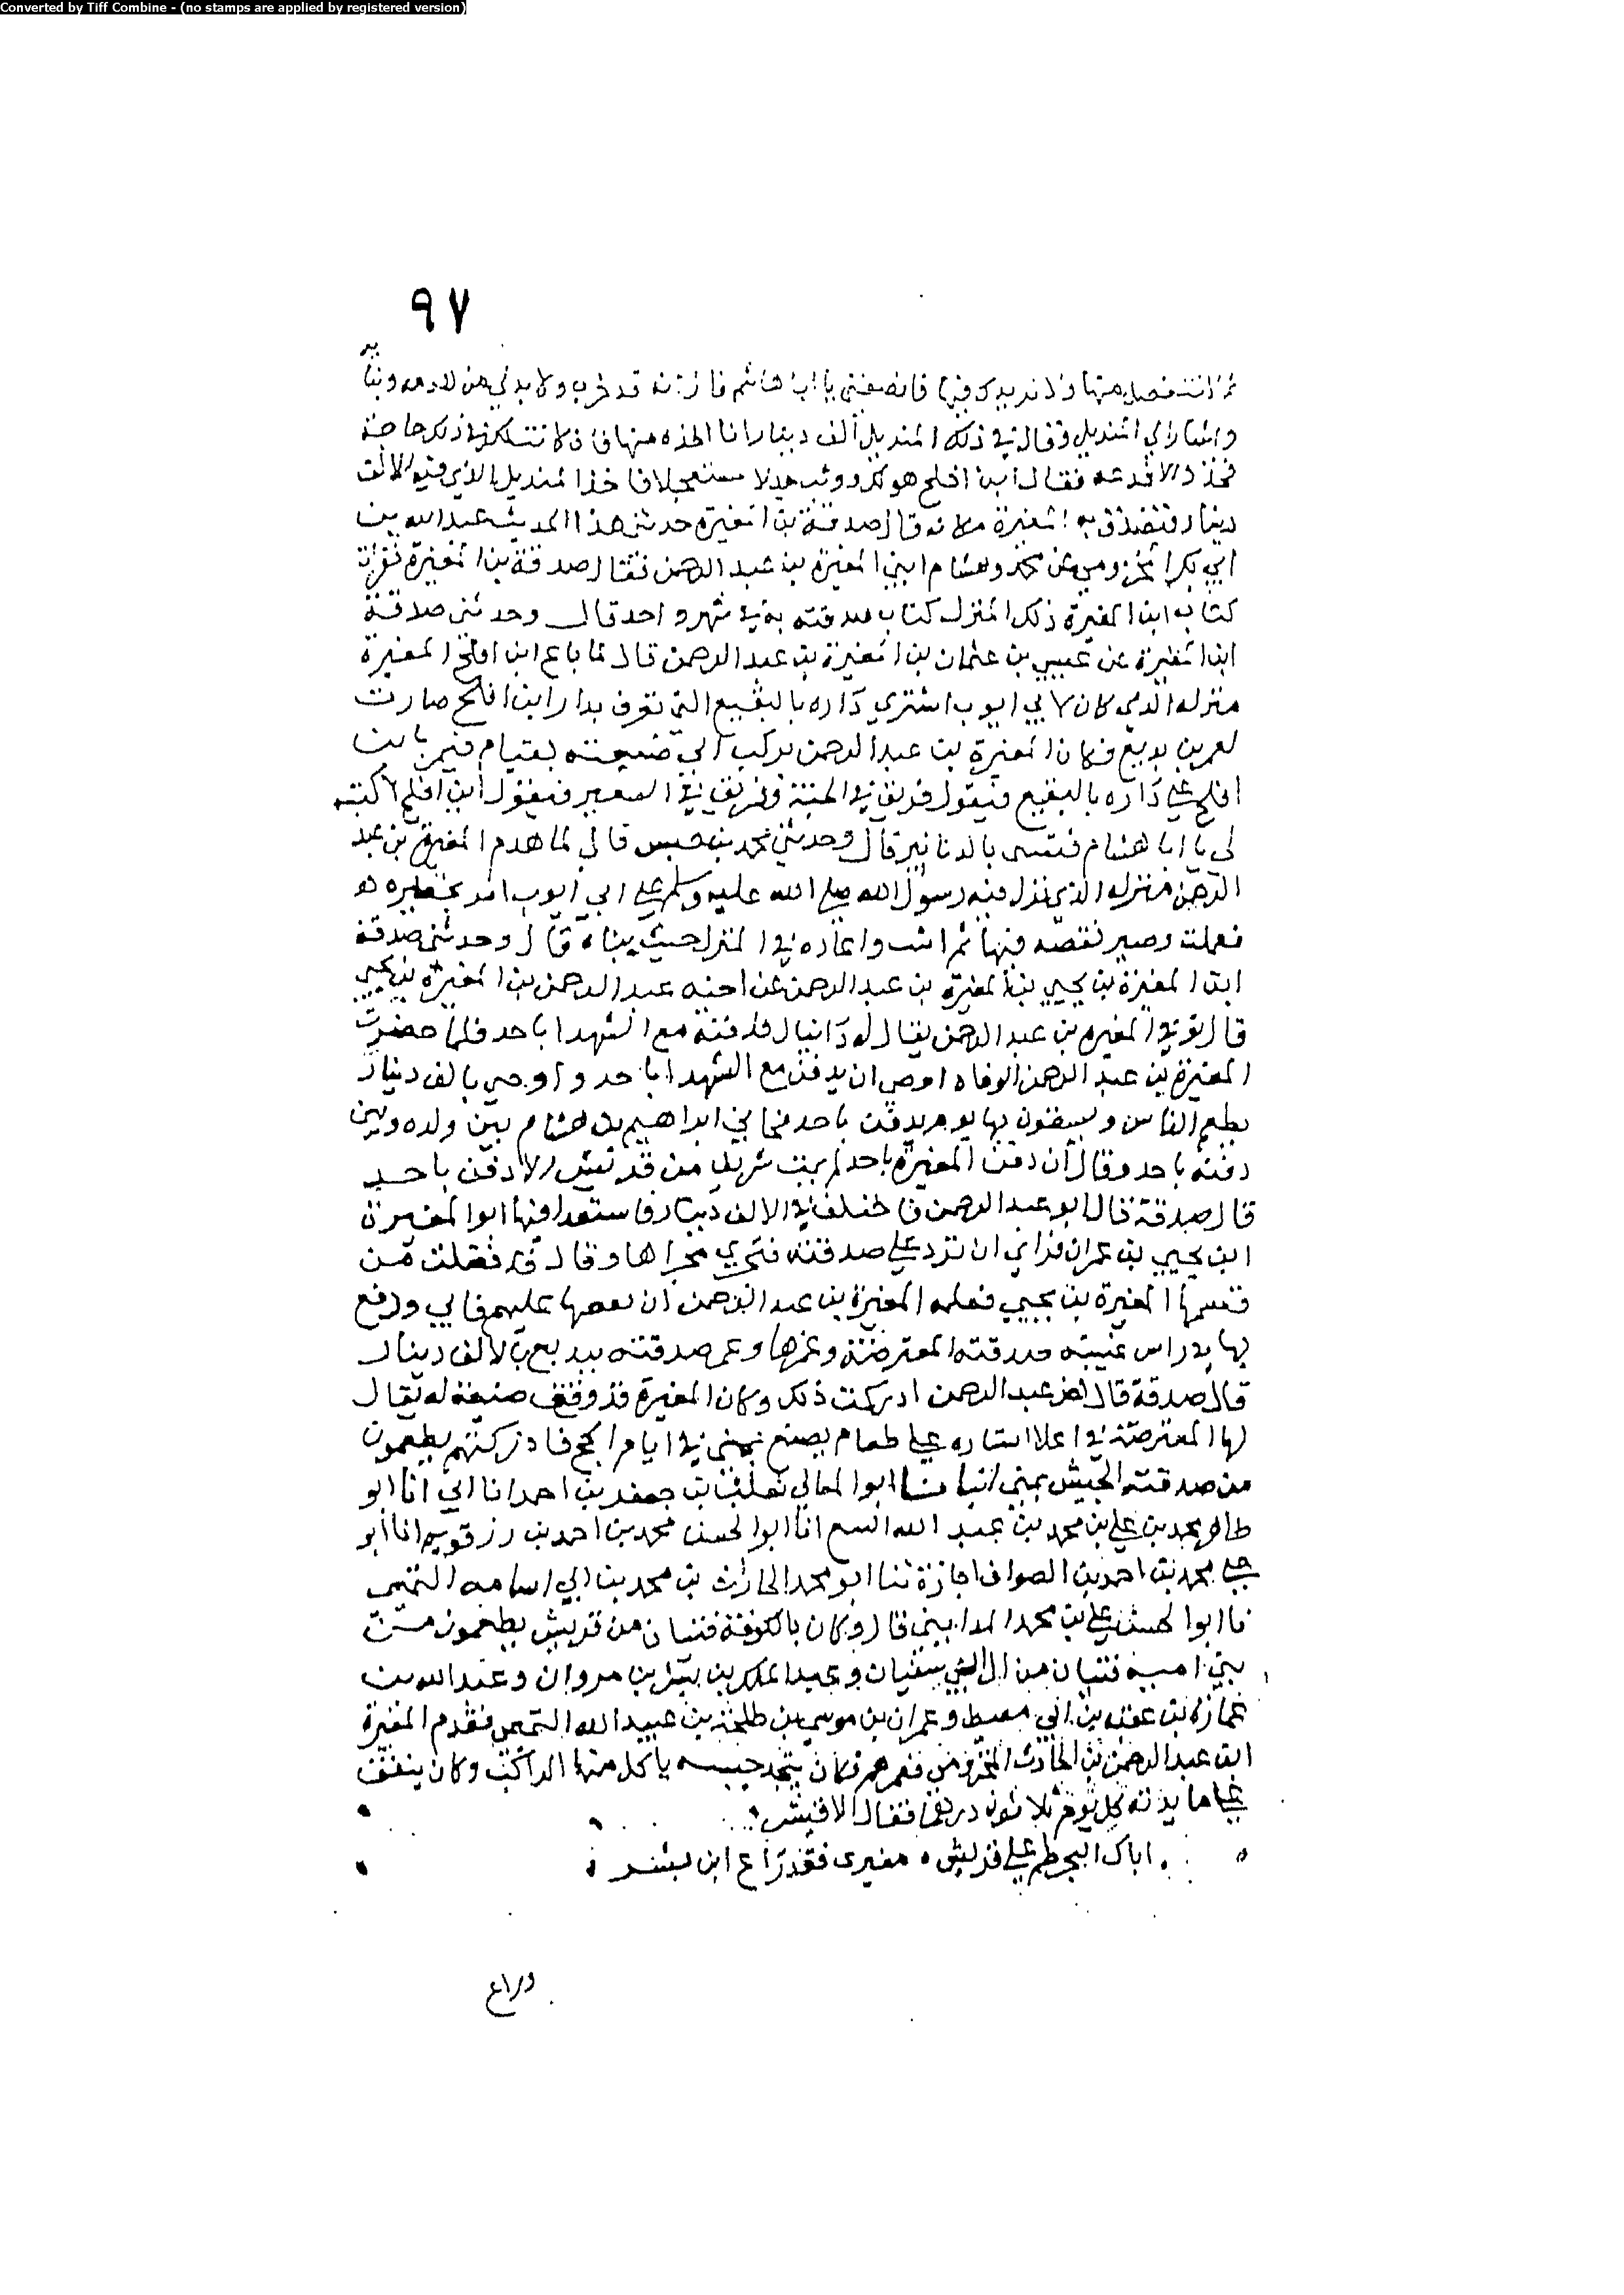 Converted by Tiff Combine - (no stamps are applied by registered version)
٩٧
فانصفني يا ابا هاشم فان قد خرب ولا بد لي من
واشار الي المنديل وقال في ذلك المنديل الف دينار انا اخذه منها فان كانت لك في ذلك حاجة
فخذ والا فدعه فقال ابن افلح هو لك ووثب مستعجلا فاخذ المنديل الذي فيه الالف
دينار فتصدق به المغيرة مكانه قال صدقة بن المغيرة حدثني هذا الحديث عبد الله بن
ابي بكر المخزومي عن محمد وهشام ابني المغيرة بن عبد الرحمن فقال صدقة بن المغيرة فقرات
كتابه ابن المغيرة ذلك المنزل كتاب صدقته به في شهر واحد قال وحدثني صدقة
ابن المغيرة عن عيسي بن عثمان بن المغيرة بن عبد الرحمن قال لما باع ابن افلح المغيرة
منزله الذي كان لابي ايوب اشتري داره بالبقيع التي تعرف بدار ابن افلح صارت
لعمر بن بزيع فكان المغيرة بن عبد الرحمن يركب الي ضيعته بقيام فيمر بابن
افلح علي داره بالبقيع فيقول فريق في الجنة وفريق في السعير فيقول ابن افلح
يا ابا هشام بالدنانير قال وحدثني محمد بن قال لي لما هدم المغيرة بن عبد
الرحمن منزله الذي نزل فيه رسول الله صلي الله عليه وسلم علي ابي ايوب امر
فعملت وصير نقضه فيها ثم واعاده في المنزل حيث بناه قال وحدثني صدقة
ابن المغيرة بن يحيي بن المغيرة بن عبد الرحمن عن اخيه عبد الرحمن بن المغيرة بن يحيي
قال المغيره بن عبد الرحمن يقال له دانيال فدفنه مع الشهدا باحد فلما حضرت
المغيرة بن عبد الرحمن الوفاه اوصي ان يدفن مع الشهدا باحد واوصي بالف دينار
يطعم الناس ويسقون بها يوم يدفن باحد ابراهيم بن هشام بين ولده وبين
دفنه باحد وقال ان دفن المغيرة باحد لم يمت شريف من قريش الا دفن باحد
قال صدقة قال ابو عبد الرحمن فاختلف في الالف دينار فاستعدا فيها ابو المغيرة
ابن يحيي بن عمران فراي ان ترد علي صدقته فتجري مجراها وقال قد فضلت من
المغيرة بن يحيي المغيرة بن عبد الرحمن ان عليهم فابي ودفع
بها صدقته المعترضة وعمرها وعمر صدقته ببديع بالالف دينار
قال صدقة قال عبد الرحمن ادركت ذلك وكان المغيرة قد وقف ضيعة له يقال
لها المعترضة في اعلا علي طعام يصنع بمني في ايام الحج فادركتهم يطعمون
من صدقته الحيس بمني ابو المعالي ثعلب بن جعفر بن احمد انا ابي انا ابو
طاهر محمد بن علي بن محمد بن عبد الله انا ابو الحسن محمد بن احمد بن رزقويه انا ابو
علي محمد بن احمد بن الصواف اجازة ثنا ابو محمد الحارث بن محمد بن ابي اسامه التميمي
نا ابو الحسن علي بن محمد المدايني قال وكان بالكوفة فتيان من قريش يطعمون من
بني اميه فتيان من ال ابي سفيان وعبد الملك بن بشر بن مروان وعبد الله بن
عمارة بن عقبه بن ابي معيط وعمران بن موسي بن طلحة بن عبيد الله التيمي فقدم المغيرة
ابن عبد الرحمن بن الحارث المخزومي فغمرهم فكان يتخذ حيسه ياكل منها الراكب وكان ينفق
علي مايدته كل يوم ثلاثون درهما فقال الاقيشر
اتاك البحر طم علي قريش مغيري فقد راع ابن بشر
وراع